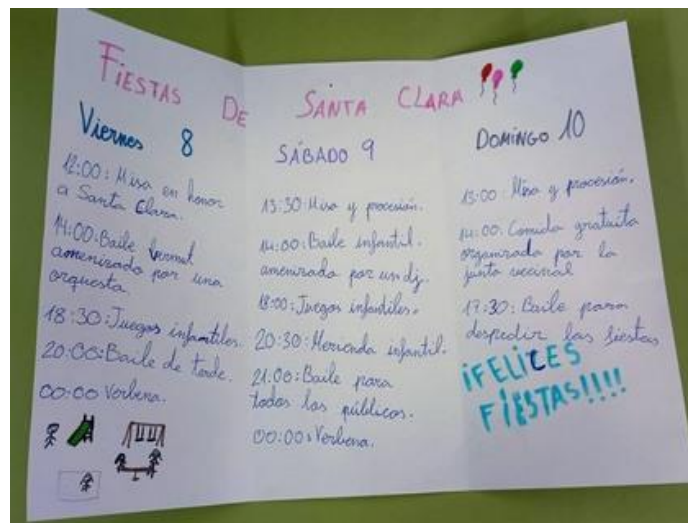 FIESTAS DE SANTA CLARA
Viernes 8
12:00: Misa en honor
a Santa Clara.
14:00: Baile Vermut
amenizado por una
orquesta.
18:30: Juegos infantiles.
20:00: Baile de tarde.
00:00 Verbena.
SÁBADO 9
13:30: Misa y procesión.
14:00: Baile infantil.
amenizado por un dj.
18:00: Juegos infantiles.
20:30: Merienda infantil.
21:00: Baile para
todos los públicos.
00:00: Verbena.
DOMINGO 10
13:00 Misa y procesión.
14:00: Comida gratuita
organizada por la
junta vecinal
17:30: Baile para
despedir las fiestas
¡FELICES
FIESTAS!!!!